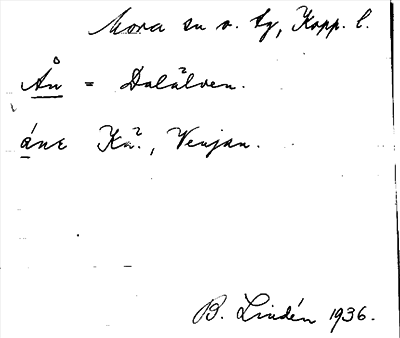 Mora sn o. tg, Kopp. l.
Ån = Dalälven.
áne Kä?, Venjan.
B. Lindén 1936.